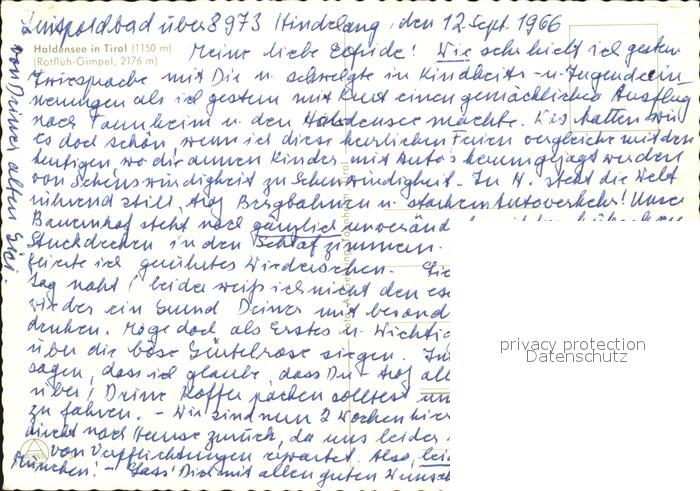 Luitpoldbad über 8973 Hindelang, den 12. Sept. 1966
Haldensee in Tirol (1150 m)
(Rotflüh-Gimpel, 2176 m)
Meine liebe! Wie sehr hielt ich gestern
Zwiesprache mit Dir u. schwelgte in Kindheits- u. Jugenderin-
nerungen als ich gestern mit Kurt einen gemächlichen Ausflug
nach Tannheim u. den Haldensee machte. Was hatten wir
es doch schön, wenn ich diese herrlichen Ferien vergleiche mit den
heutigen, wo die armen Kinder mit Autos herumgejagt werden
von Sehenswürdigkeit zu Sehenswürdigkeit. In H. steht die Welt
rührend still, trotz Bergbahnen u. starkem Autoverkehr! Unser
Bauernhof steht noch gänzlich unveränd
Stuckdecken in den Schlafzimmern.
feierte ich gerührtes Wiedersehen.
Tag naht, leider weiß ich nicht den
wieder ein Grund Deiner mit besond
denken. Möge doch als Erstes u. Wichtig
über die böse Gürtelrose siegen.
sagen, dass ich glaube, dass Du trotz all
über, Deine Koffer packen solltest un
zu fahren. – Wir sind nun 2 Wochen hier
direkt nach Hause zurück, da uns leider
von Verpflichtungen erwartet. Also, lei
München! – Lass' Dich mit allen guten Wünsch
von Deiner alten
privacy protection
Datenschutz